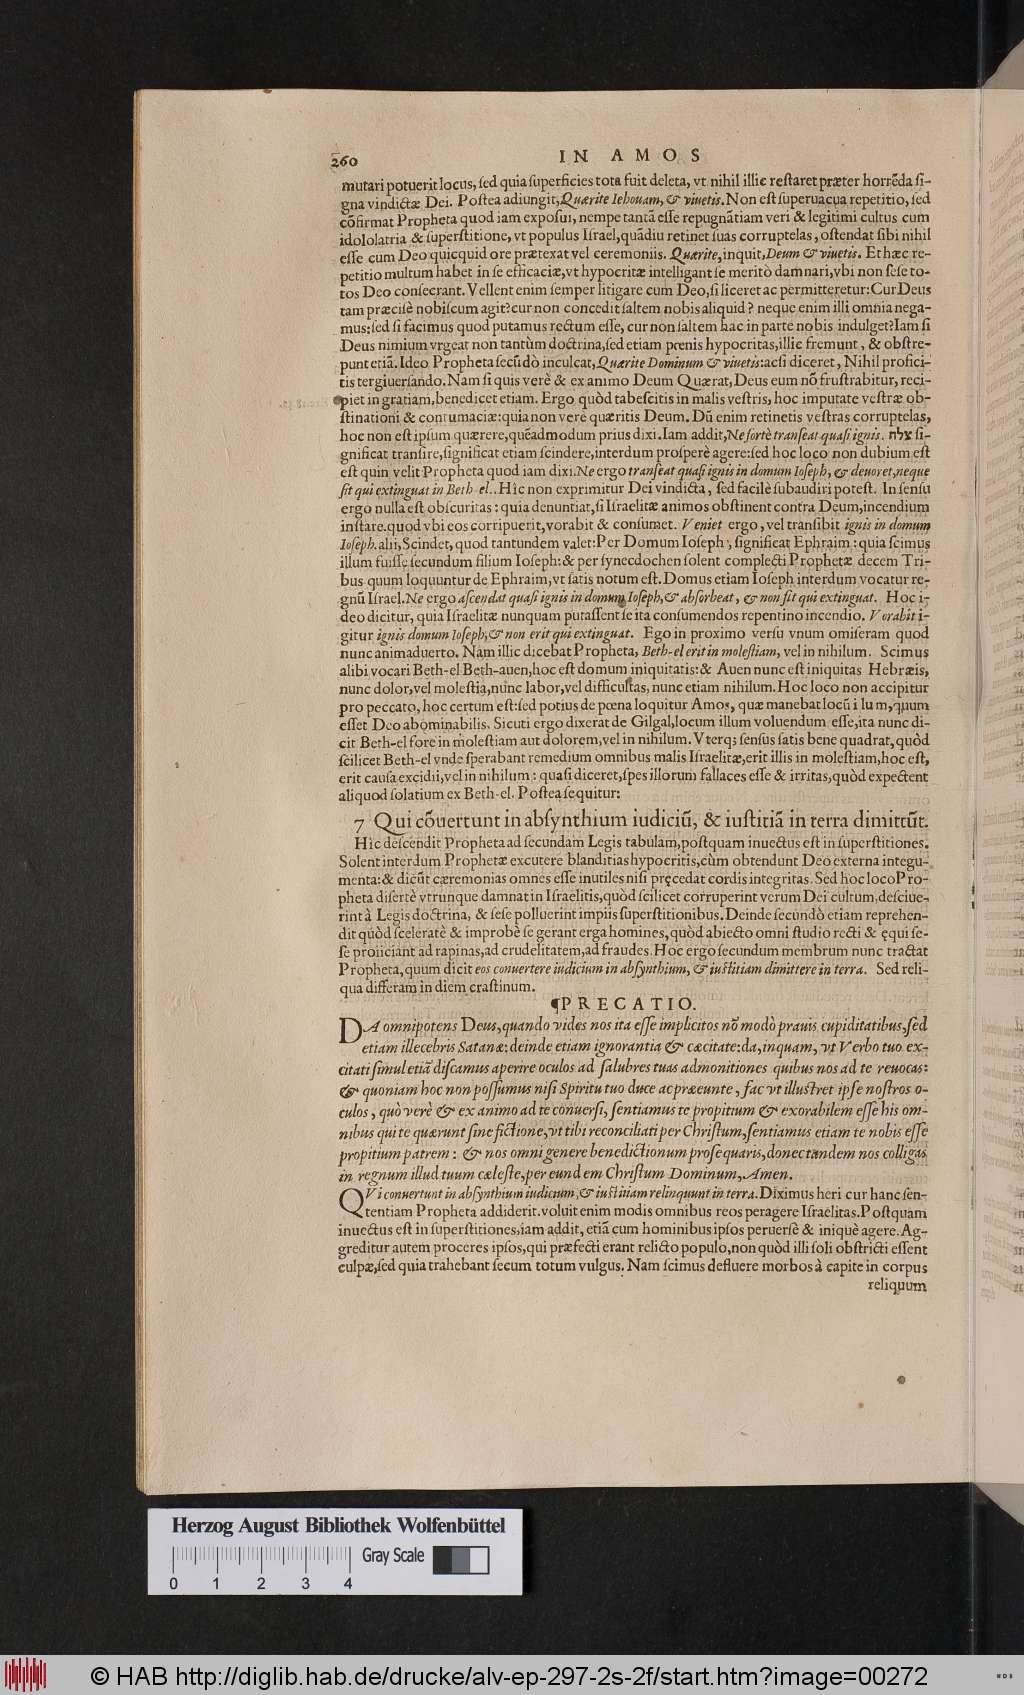 260
IN AMOS
mutari potuerit locus, ſed quia ſuperficies tota fuit deleta, vt nihil illic reſtaret præter horrẽda ſi-
gna vindictæ Dei. Poſtea adiungit, Quærite Iehouam, & viuetis. Non eſt ſuperuacua repetitio, ſed
cõfirmat Propheta quod iam expoſui, nempe tantã eſſe repugnãtiam veri & legitimi cultus cum
idololatria & ſuperſtitione, vt populus Iſrael, quãdiu retinet ſuas corruptelas, oſtendat ſibi nihil
eſſe cum Deo quicquid ore prætexat vel ceremoniis. Quærite, inquit, Deum & viuetis. Et hæc re-
petitio multum habet in ſe efficaciæ, vt hypocritæ intelligant ſe meritò damnari, vbi non ſeſe to-
tos Deo conſecrant. Vellent enim ſemper litigare cum Deo, ſi liceret ac permitteretur: Cur Deus
tam præciſè nobiſcum agit? cur non concedit ſaltem nobis aliquid? neque enim illi omnia nega-
mus: ſed ſi facimus quod putamus rectum eſſe, cur non ſaltem hac in parte nobis indulget? Iam ſi
Deus nimium vrgeat non tantùm doctrina, ſed etiam pœnis hypocritas, illic fremunt, & obſtre-
punt etiã. Ideo Propheta ſecũdò inculcat, Quærite Dominum & viuetis: acſi diceret, Nihil profici-
tis tergiuerſando. Nam ſi quis verè & ex animo Deum Quærat, Deus eum nõ fruſtrabitur, reci-
piet in gratiam, benedicet etiam. Ergo quòd tabeſcitis in malis veſtris, hoc imputate veſtræ ob-
ſtinationi & contumaciæ: quia non verè quæritis Deum. Dũ enim retinetis veſtras corruptelas,
hoc non eſt ipſum quærere, quẽadmodum prius dixi. Iam addit, Ne fortè tranſeat quaſi ignis. צלח ſi-
gnificat tranſire, ſignificat etiam ſcindere, interdum proſperè agere: ſed hoc loco non dubium eſt
eſt quin velit Propheta quod iam dixi. Ne ergo tranſeat quaſi ignis in domum Ioſeph, & deuoret, neque
ſit qui extinguat in Beth-el.. Hîc non exprimitur Dei vindicta, ſed facilè ſubaudiri poteſt. In ſenſu
ergo nulla eſt obſcuritas: quia denuntiat, ſi Iſraelitæ animos obſtinent contra Deum, incendium
inſtare. quod vbi eos corripuerit, vorabit & conſumet. Veniet ergo, vel tranſibit ignis in domum
Ioſeph. alii, Scindet, quod tantundem valet: Per Domum Ioſeph, ſignificat Ephraim: quia ſcimus
illum fuiſſe ſecundum filium Ioſeph: & per ſynecdochen ſolent complecti Prophetæ decem Tri-
bus quum loquuntur de Ephraim, vt ſatis notum eſt. Domus etiam Ioſeph interdum vocatur re-
gnũ Iſrael. Ne ergo aſcendat quaſi ignis in domum Ioſeph, & abſorbeat, & non ſit qui extinguat. Hoc i-
deo dicitur, quia Iſraelitæ nunquam putaſſent ſe ita conſumendos repentino incendio. Vorabit i-
gitur ignis domum Ioſeph, & non erit qui extinguat. Ego in proximo verſu vnum omiſeram quod
nunc animaduerto. Nam illic dicebat Propheta, Beth-el erit in moleſtiam, vel in nihilum. Scimus
alibi vocari Beth-el Beth-auen, hoc eſt domum iniquitatis: & Auen nunc eſt iniquitas Hebræis,
nunc dolor, vel moleſtia, nunc labor, vel difficultas, nunc etiam nihilum. Hoc loco non accipitur
pro peccato, hoc certum eſt: ſed potius de pœna loquitur Amos, quæ manebat locũ i lum, quum
eſſet Deo abominabilis. Sicuti ergo dixerat de Gilgal, locum illum voluendum eſſe, ita nunc di-
cit Beth-el fore in moleſtiam aut dolorem, vel in nihilum. Vterq; ſenſus ſatis bene quadrat, quòd
ſcilicet Beth-el vnde ſperabant remedium omnibus malis Iſraelitæ, erit illis in moleſtiam, hoc eſt,
erit cauſa excidii, vel in nihilum: quaſi diceret, ſpes illorum fallaces eſſe & irritas, quòd expectent
aliquod ſolatium ex Beth-el. Poſtea ſequitur:
7 Qui cõuertunt in abſynthium iudiciũ, & iuſtitiã in terra dimittũt.
Hîc deſcendit Propheta ad ſecundam Legis tabulam, poſtquam inuectus eſt in ſuperſtitiones.
Solent interdum Prophetæ excutere blanditias hypocritis, cùm obtendunt Deo externa integu-
menta: & dicũt cæremonias omnes eſſe inutiles niſi pręcedat cordis integritas. Sed hoc loco Pro-
pheta diſertè vtrunque damnat in Iſraelitis, quòd ſcilicet corruperint verum Dei cultum, deſciue-
rint à Legis doctrina, & ſeſe polluerint impiis ſuperſtitionibus. Deinde ſecundò etiam reprehen-
dit quòd ſceleratè & improbè ſe gerant erga homines, quòd abiecto omni ſtudio recti & ęqui ſe-
ſe proiiciant ad rapinas, ad crudelitatem, ad fraudes. Hoc ergo ſecundum membrum nunc tractat
Propheta, quum dicit eos conuertere iudicium in abſynthium, & iuſtitiam dimittere in terra. Sed reli-
qua differam in diem craſtinum.
¶PRECATIO.
DA omnipotens Deus, quando vides nos ita eſſe implicitos nõ modò prauis cupiditatibus, ſed
etiam illecebris Satanæ: deinde etiam ignorantia & cæcitate: da, inquam, vt Verbo tuo ex-
citati ſimul etiã diſcamus aperire oculos ad ſalubres tuas admonitiones quibus nos ad te reuocas:
& quoniam hoc non poſſumus niſi Spiritu tuo duce ac præeunte, fac vt illuſtret ipſe noſtros o-
culos, quò verè & ex animo ad te conuerſi, ſentiamus te propitium & exorabilem eſſe his om-
nibus qui te quærunt ſine fictione, vt tibi reconciliati per Chriſtum, ſentiamus etiam te nobis eſſe
propitium patrem: & nos omni genere benedictionum proſequaris, donec tandem nos colligas
in regnum illud tuum cæleſte, per eundem Chriſtum Dominum, Amen.
QVi conuertunt in abſynthium iudicium, & iuſtitiam relinquunt in terra. Diximus heri cur hanc ſen-
tentiam Propheta addiderit. voluit enim modis omnibus reos peragere Iſraelitas. Poſtquam
inuectus eſt in ſuperſtitiones, iam addit, etiã cum hominibus ipſos peruerſè & iniquè agere. Ag-
greditur autem proceres ipſos, qui præfecti erant relicto populo, non quòd illi ſoli obſtricti eſſent
culpæ, ſed quia trahebant ſecum totum vulgus. Nam ſcimus defluere morbos à capite in corpus
reliquum
Herzog August Bibliothek Wolfenbüttel
Gray Scale
0 1 2 3 4
© HAB http://diglib.hab.de/drucke/alv-ep-297-2s-2f/start.htm?image=00272